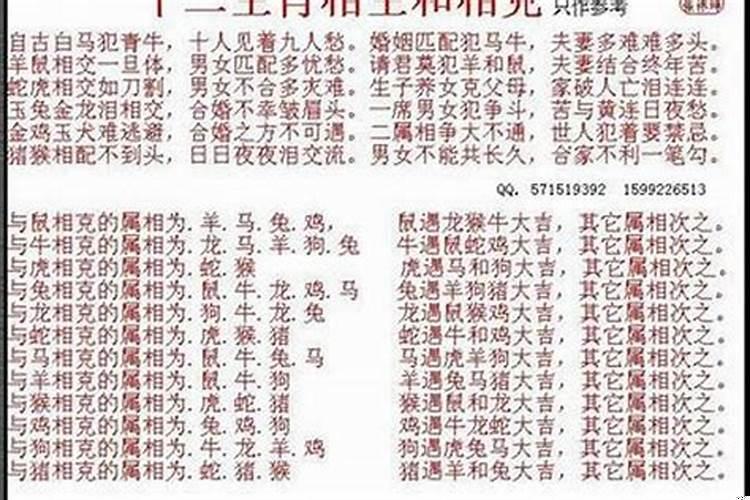 十二生肖相生和相克 只作参考
自古白马犯青牛，十人见着九人愁。婚姻匹配犯马牛，夫妻多难难多头。
羊鼠相交一旦体，男女匹配多忧愁。请君莫犯羊和鼠，夫妻结合终年苦。
蛇虎相交如刀割，男女不合多灾难。生子养女克父母，家破人亡泪连连。
玉兔金龙泪相交，合婚不幸皱眉头。一席男女犯争斗，苦与黄连日夜愁。
金鸡玉犬难逃避，合婚之方不可遇。二属相争大不通，世人犯着要禁忌。
猪猴相配不到头，日日夜夜泪交流。男女不能共长久，合家不利一笔勾。
QQ. 571519392 1599226513
与鼠相克的属相为.羊.马.兔.鸡，
与牛相克的属相为.龙.马.羊.狗.兔
与虎相克的属相为.蛇.猴
与兔相克的属相为.鼠.牛.龙.鸡.马
与龙相克的属相为.狗.牛.龙.兔
与蛇相克的属相为.虎.猴.猪
与马相克的属相为.鼠.牛.兔.马
与羊相克的属相为.鼠.牛.狗
与猴相克的属相为.虎.蛇.猪
与鸡相克的属相为.兔.鸡.狗
与狗相克的属相为.牛.龙.羊.鸡
与猪相克的属相为.蛇.猪.猴
鼠遇龙猴牛大吉，其它属相次之。
牛遇鼠蛇鸡大吉，其它属相次之。
虎遇马和狗大吉，其它属相次之。
兔遇羊狗猪大吉，其它属相次之。
龙遇鼠猴鸡大吉，其它属相次之。
蛇遇牛和鸡大吉，其它属相次之。
马遇虎羊狗大吉，其它属相次之。
羊遇兔马猪大吉，其它属相次之。
猴遇鼠和龙大吉，其它属相次之。
鸡遇牛龙蛇大吉，其它属相次之。
狗遇虎兔马大吉，其它属相次之。
猪遇羊和兔大吉，其它属相次之。